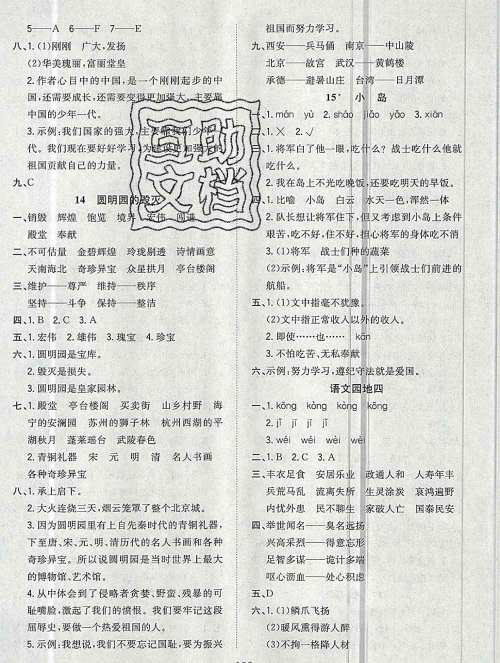 5——A 6——F 7——E
八、1.(1)刚刚 广大,发扬
(2)华美瑰丽,富丽堂皇
2.作者心目中的中国,是一个刚刚起步的中
国,还需要成长,还需要变得更加强大,主要靠
中国的少年一代。
3.示例:我们国家的强大,主要靠我们少年一
代。我们现在要好好学习,为建设更加强大的
祖国贡献自己的力量。
九、C
14 圆明园的毁灭
一、销毁 辉煌 饱览 境界 宏伟
殿堂 奉献
二、不可估量 金碧辉煌 玲珑剔透 诗情画意
天南海北 奇珍异宝 众星拱月 亭台楼阁
三、维护——尊严 维持——秩序
坚持——斗争 保持——整洁
四、1.B 2.C 3.A
五、1.宏伟 2.雄伟 3.瑰宝 4.珍宝
六、1.圆明园是宝库。
2.毁灭是损失。
3.圆明园是皇家园林。
七、1.殿堂 亭台楼阁 买卖街 山乡村野 海
宁的安澜园 苏州的狮子林 杭州西湖的平
湖秋月 蓬莱瑶台 武陵春色
2.青铜礼器 宋 元 明 清 名人书画
各种奇珍异宝
八、1.承上启下。
2.大火连烧三天,烟云笼罩了整个北京城。
3.因为圆明园里有上自先秦时代的青铜礼器,
下至唐、宋、元、明、清历代的名人书画和各种
奇珍异宝。所以说圆明园是当时世界上最大
的博物馆、艺术馆。
4.从中体会到了侵略者贪婪、野蛮、残暴的可
耻嘴脸,激起了我们的愤恨。我们要牢记这段
屈辱史,要做一个热爱祖国的人。
5.示例:我想说,我们不要忘记国耻,要为振兴
祖国而努力学习。
九、西安——兵马俑 南京——中山陵
北京——故宫 武汉——黄鹤楼
承德——避暑山庄 台湾——日月潭
15* 小 岛
一、1.mán yù 2.sháo jiāo yǎo 3.xiān
二、1.╳ 2.√
三、1.将军白了他一眼,吃什么?战士们吃什么他就
吃什么。
2.我在岛上不光吃晚饭,还要吃明天的早饭。
四、1.比喻 小岛 白云 水天一色,浑然一体
2.队长想让将军住下,但又考虑到小岛上条件
艰苦,吃不好,住不好,担心将军的身体吃不消
3.(1)将军 战士们种的蔬菜
(2)示例:将军是“小岛”上引领战士们前进的
航船。
五、1.(1)文中指毫不犹豫。
(2)文中指正常收人以外的收人。
2.即使……也……
3.不怕吃苦、无私奉献
六、示例:努力学习,遵纪守法就是爱国。
语文园地四
一、1.kōng kòng kōng kōng
2.jī jǐ jī jī
3.wéi wèi wéi wèi
二、1.B 2.C 3.A
三、丰衣足食 安居乐业 政通人和 人寿年丰
兵荒马乱 流离失所 生灵涂炭 哀鸿遍野
内忧外患 民不聊生 家破人亡 国泰民安
四、举世闻名——臭名远扬
兴高采烈——得意忘形
足智多谋——诡计多端
呕心沥血——处心积虑
五、D
六、1.(1)鳞爪飞扬
(2)暖风熏得游人醉
(3)不拘一格降人材
互助
文档